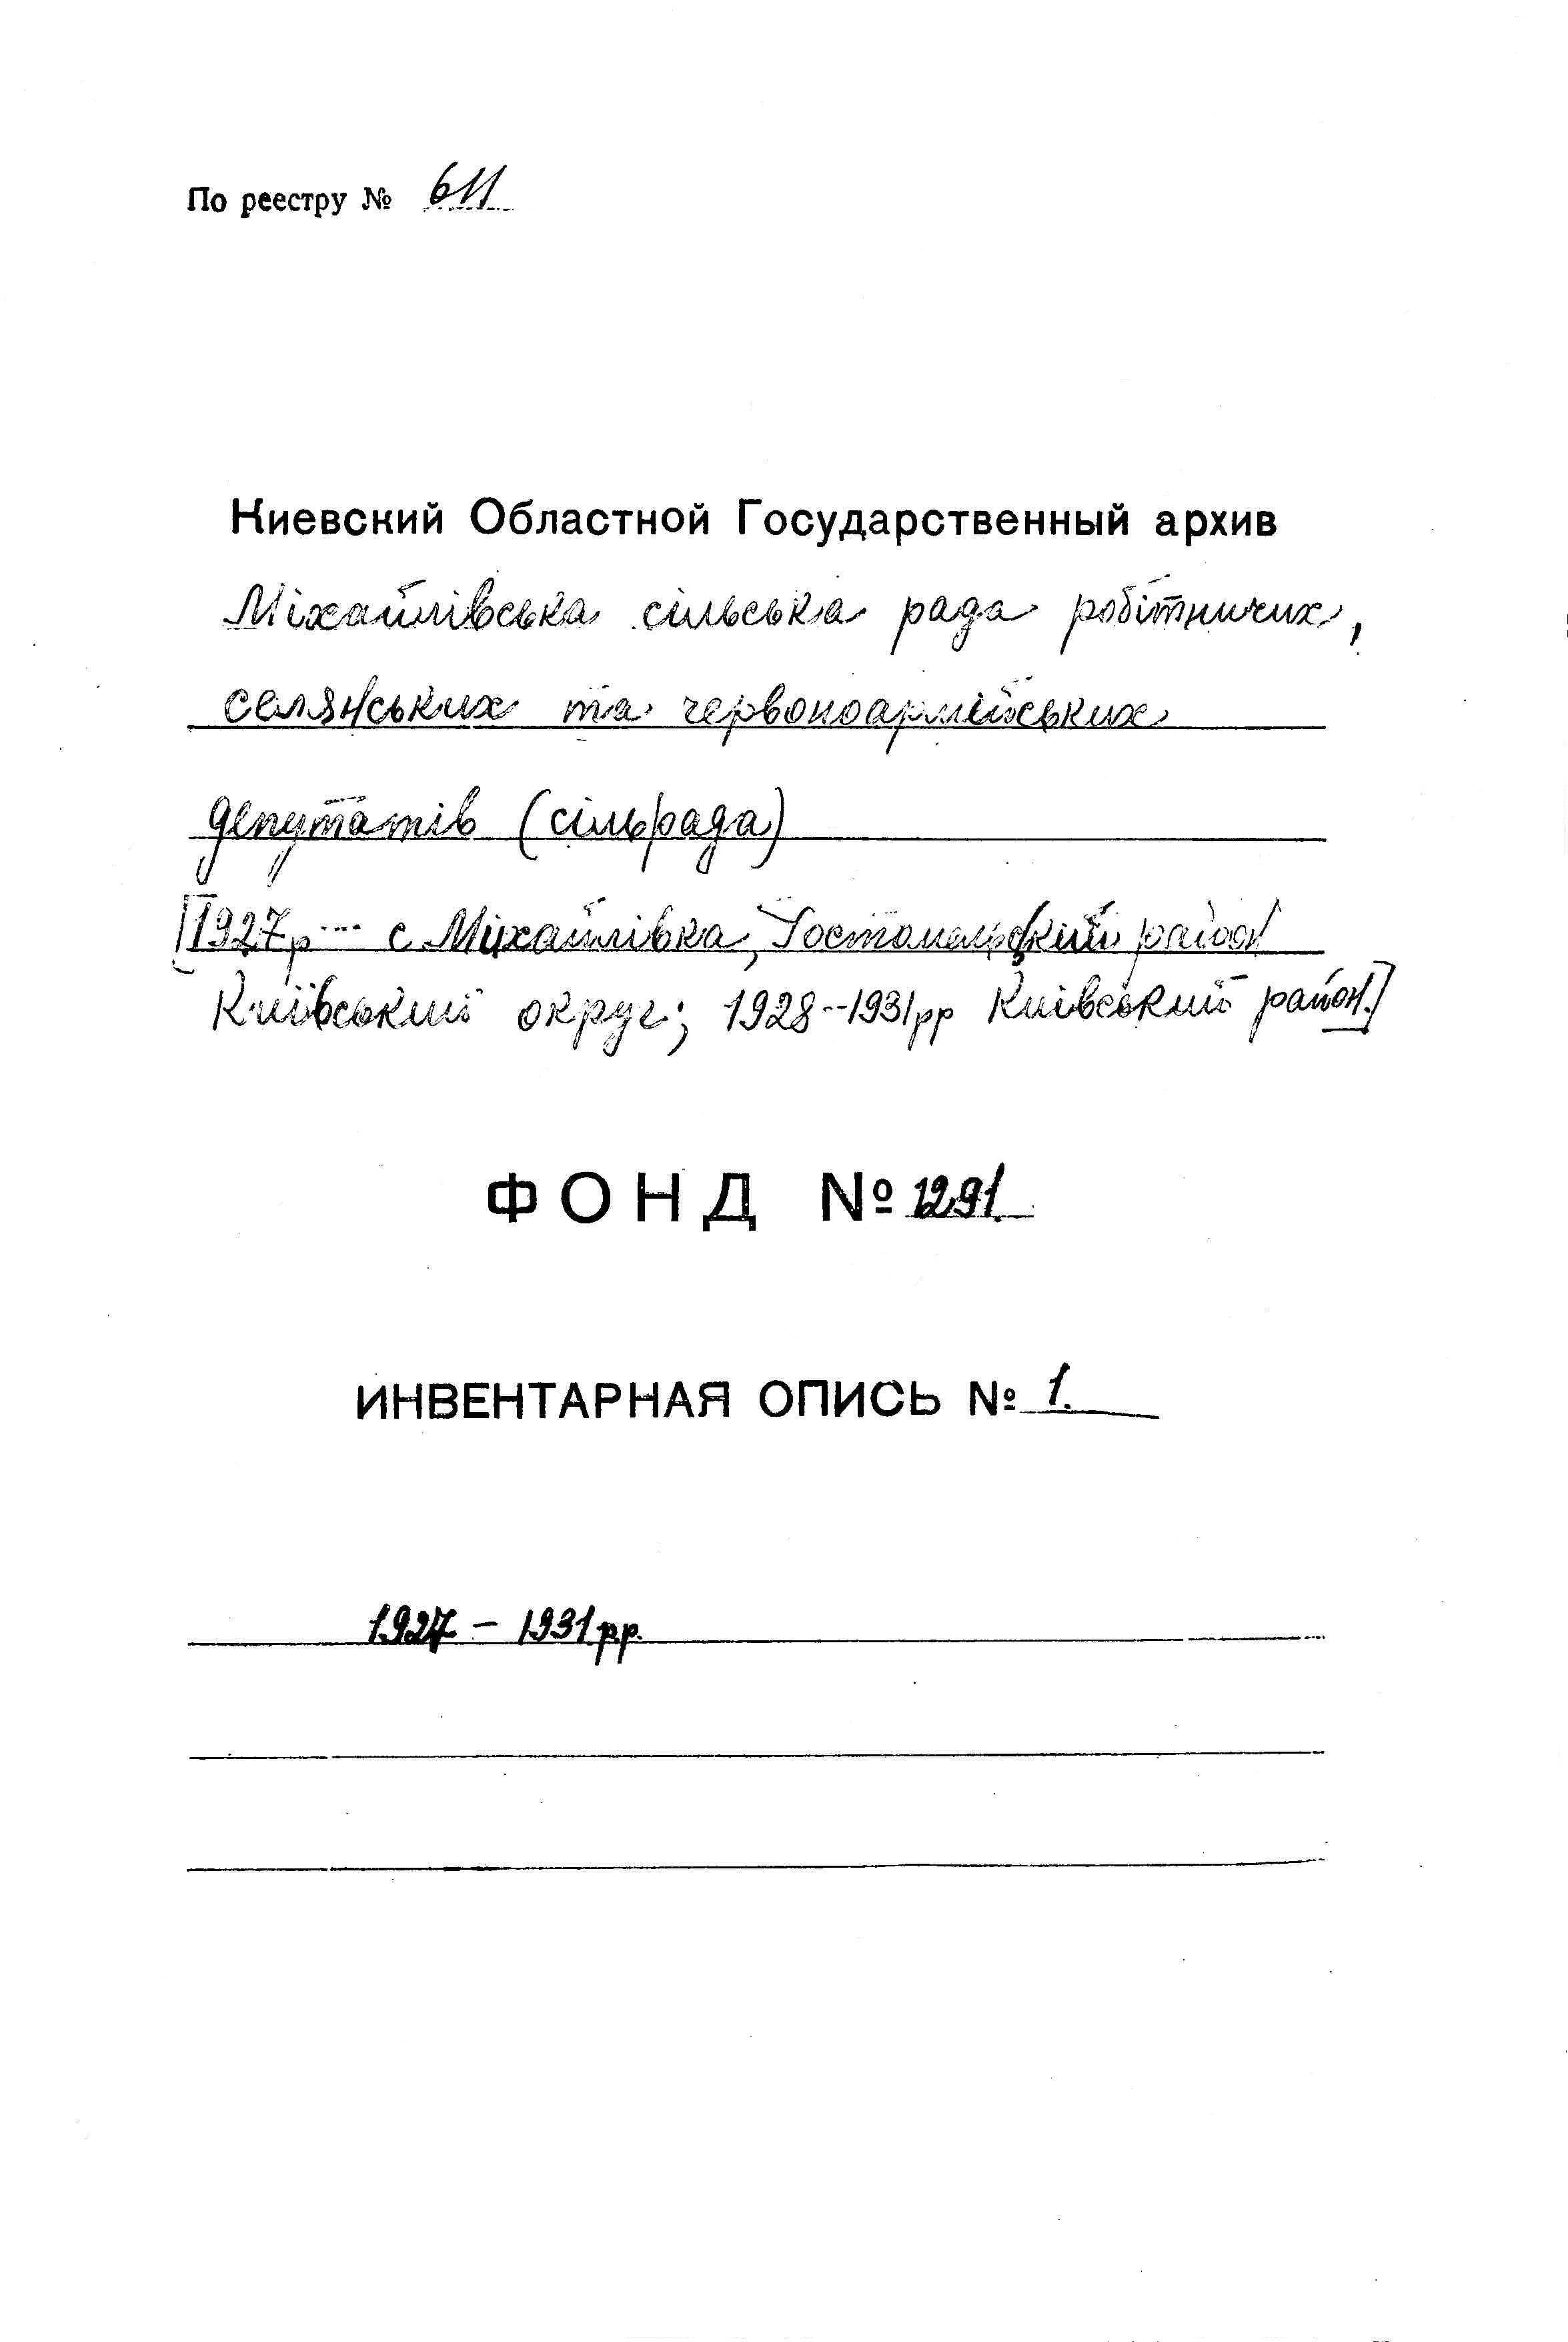 По реестру № 611
Киевский Областной Государственный архив
Міхайлівська сільська рада робітничих,
селянських та червоноармійських
депутатів (сільрада)
[1927р -- с. Міхайлівка, Гостомельский район
Київський округ; 1928--1931рр Київський район.]
ФОНД № 1291.
ИНВЕНТАРНАЯ ОПИСЬ № 1.
1927 – 1931 р.р.